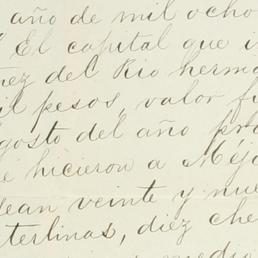 año de mil ocho
El capital que i
ñez del Rio herma
il pesos, valor fi
gosto del año pró
e hicieron a Méj
sean veinte y nue
terlinas, diez che
medio